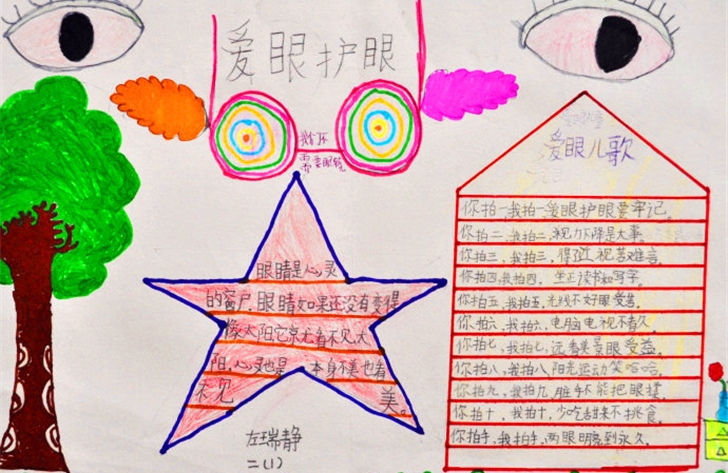 爱眼护眼
需要眼镜
眼睛是心灵
的窗户,眼睛如果还没有变得
像太阳,它就看不见太
阳,心灵也是,本身不美也看
不见美。
左瑞静
二(1)
爱眼儿歌
你拍一,我拍一,爱眼护眼要牢记。
你拍二,我拍二,视力下降是大事。
你拍三,我拍三,得了近视苦难言。
你拍四,我拍四,坐正读书和写字。
你拍五,我拍五,光线不好眼受害。
你拍六,我拍六,电脑电视不看久。
你拍七,我拍七,远看美景眼受益。
你拍八,我拍八,阳光运动笑哈哈。
你拍九,我拍九,脏手不能把眼揉。
你拍十,我拍十,少吃甜来不挑食。
你拍手,我拍手,两眼明亮到永久。